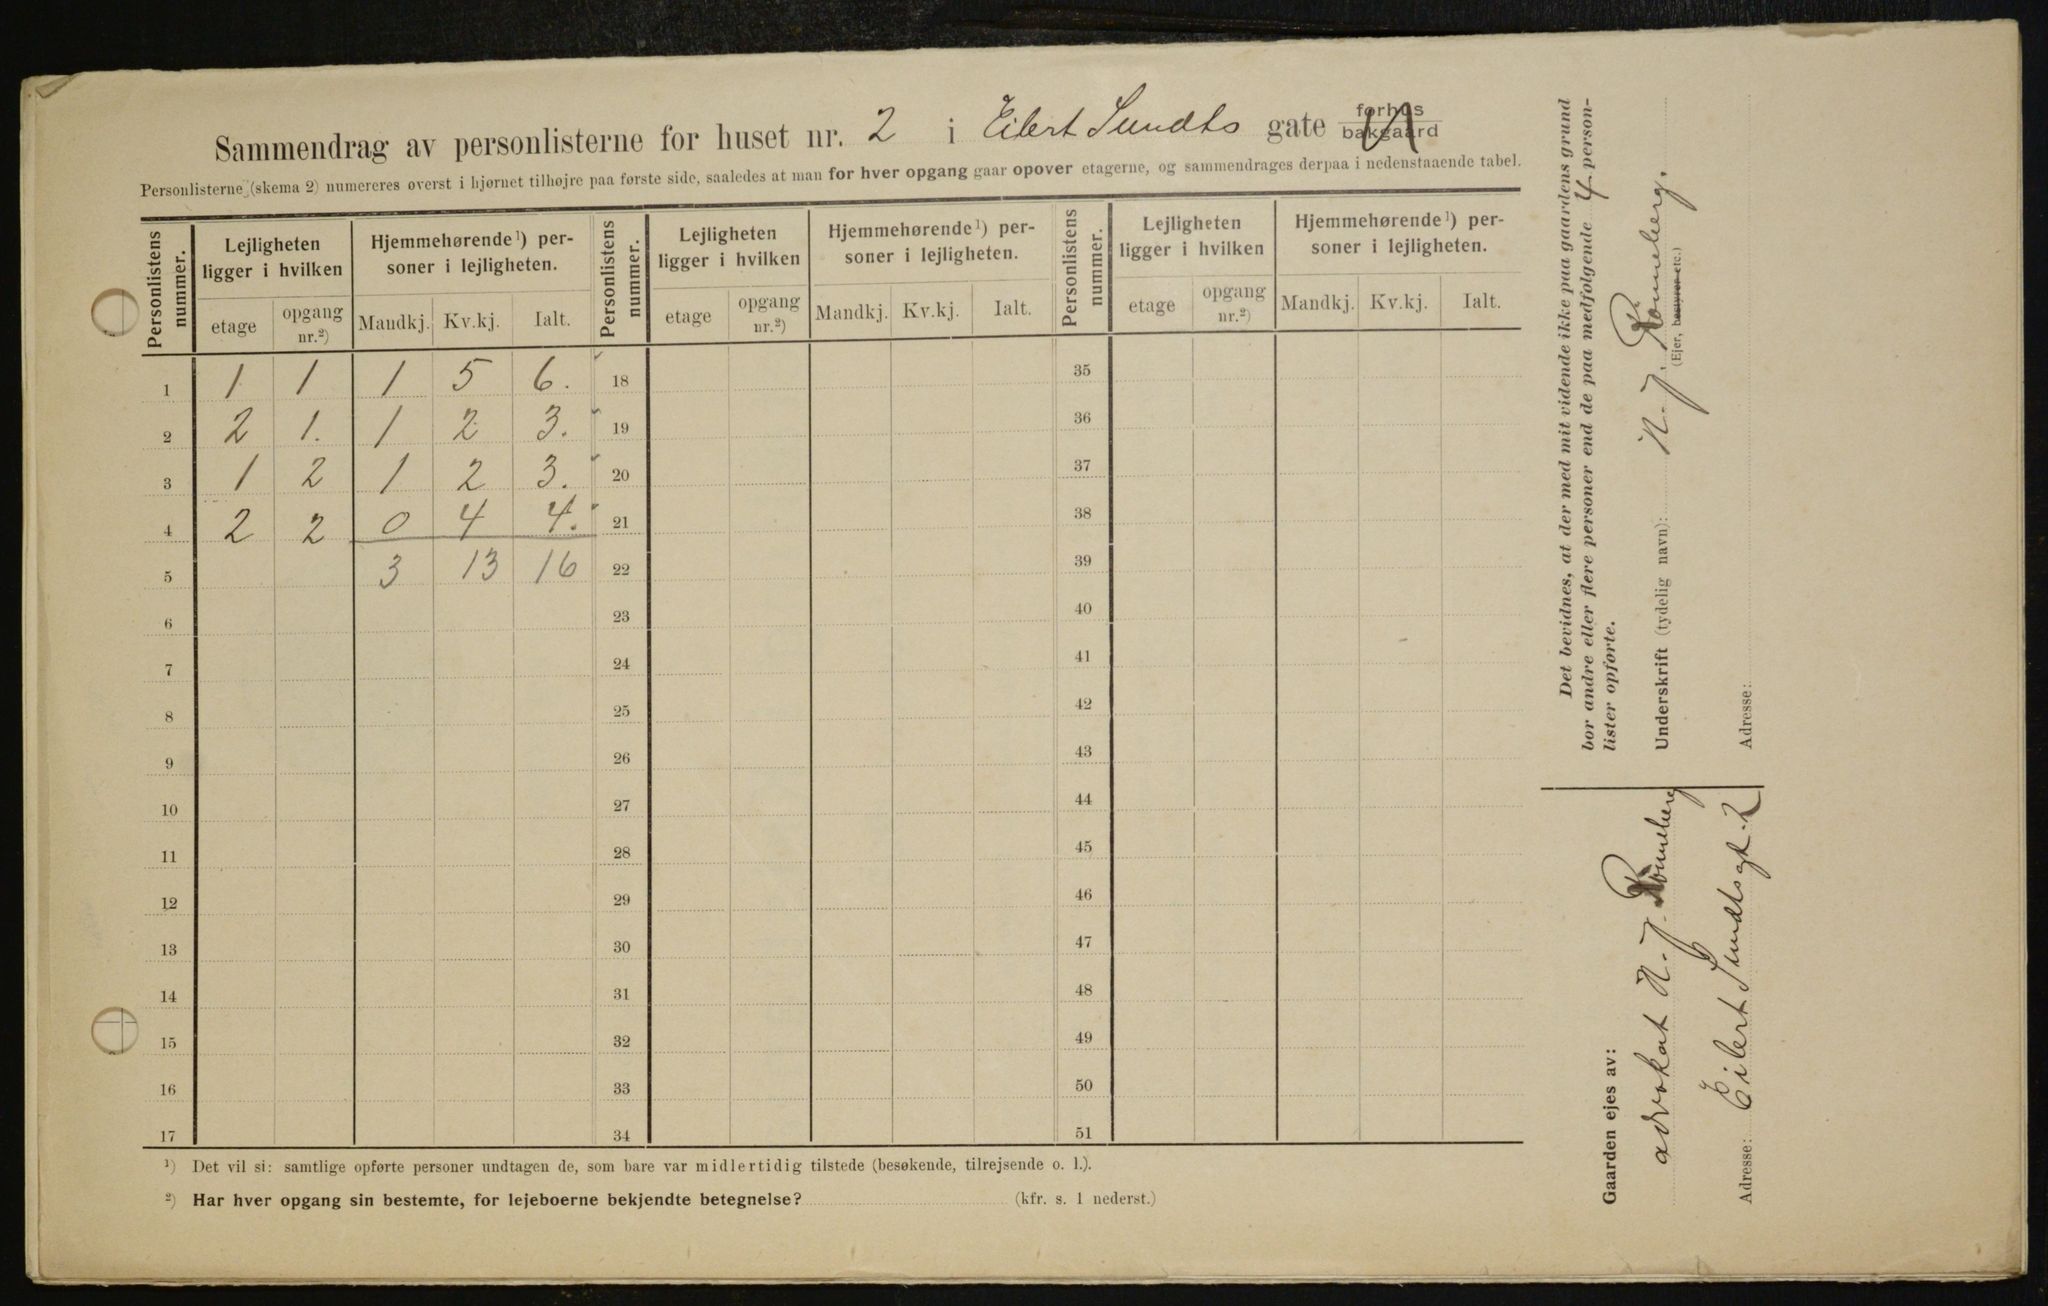 Sammendrag av personlisterne for huset nr. 2 i Eilert Sundts gate forhus bakgaard
Personlisterne (skema 2) numereres øverst i hjørnet tilhøjre paa første side, saaledes at man for hver opgang gaar opover etagerne, og sammendrages derpaa i nedenstaaende tabel.
Personlistens nummer. Lejligheten ligger i hvilken Hjemmehørende¹) personer i lejligheten. Personlistens nummer. Lejligheten ligger i hvilken Hjemmehørende¹) personer i lejligheten. Personlistens nummer. Lejligheten ligger i hvilken Hjemmehørende¹) personer i lejligheten.
etage opgang nr.²) Mandkj. Kv.kj. Ialt. etage opgang nr.²) Mandkj. Kv.kj. Ialt. etage opgang nr.²) Mandkj. Kv.kj. Ialt.
1 1 1 1 5 6. 18 35
2 2 1. 1 2 3. 19 36
3 1 2 1 2 3. 20 37
4 2 2 0 4 4. 21 38
5 3 13 16 22 39
6 23 40
7 24 41
8 25 42
9 26 43
10 27 44
11 28 45
12 29 46
13 30 47
14 31 48
15 32 49
16 33 50
17 34 51
¹) Det vil si: samtlige opførte personer undtagen de, som bare var midlertidig tilstede (besøkende, tilrejsende o. l.).
²) Har hver opgang sin bestemte, for lejeboerne bekjendte betegnelse? (kfr. s. 1 nederst.)
Det bevidnes, at der med mit vidende ikke paa gaardens grund
bor andre eller flere personer end de paa medfølgende 4 person-
lister opførte.
Underskrift (tydelig navn): N. J. Rømeberg.
(Ejer, bestyrer etc.)
Adresse:
Gaarden ejes av:
advokat N. J. Rømeberg
Adresse: Eilert Sundtsgt. 2